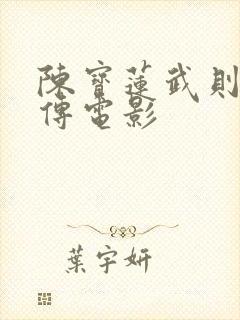 陳寶蓮武則
傳電影
葉宇妍